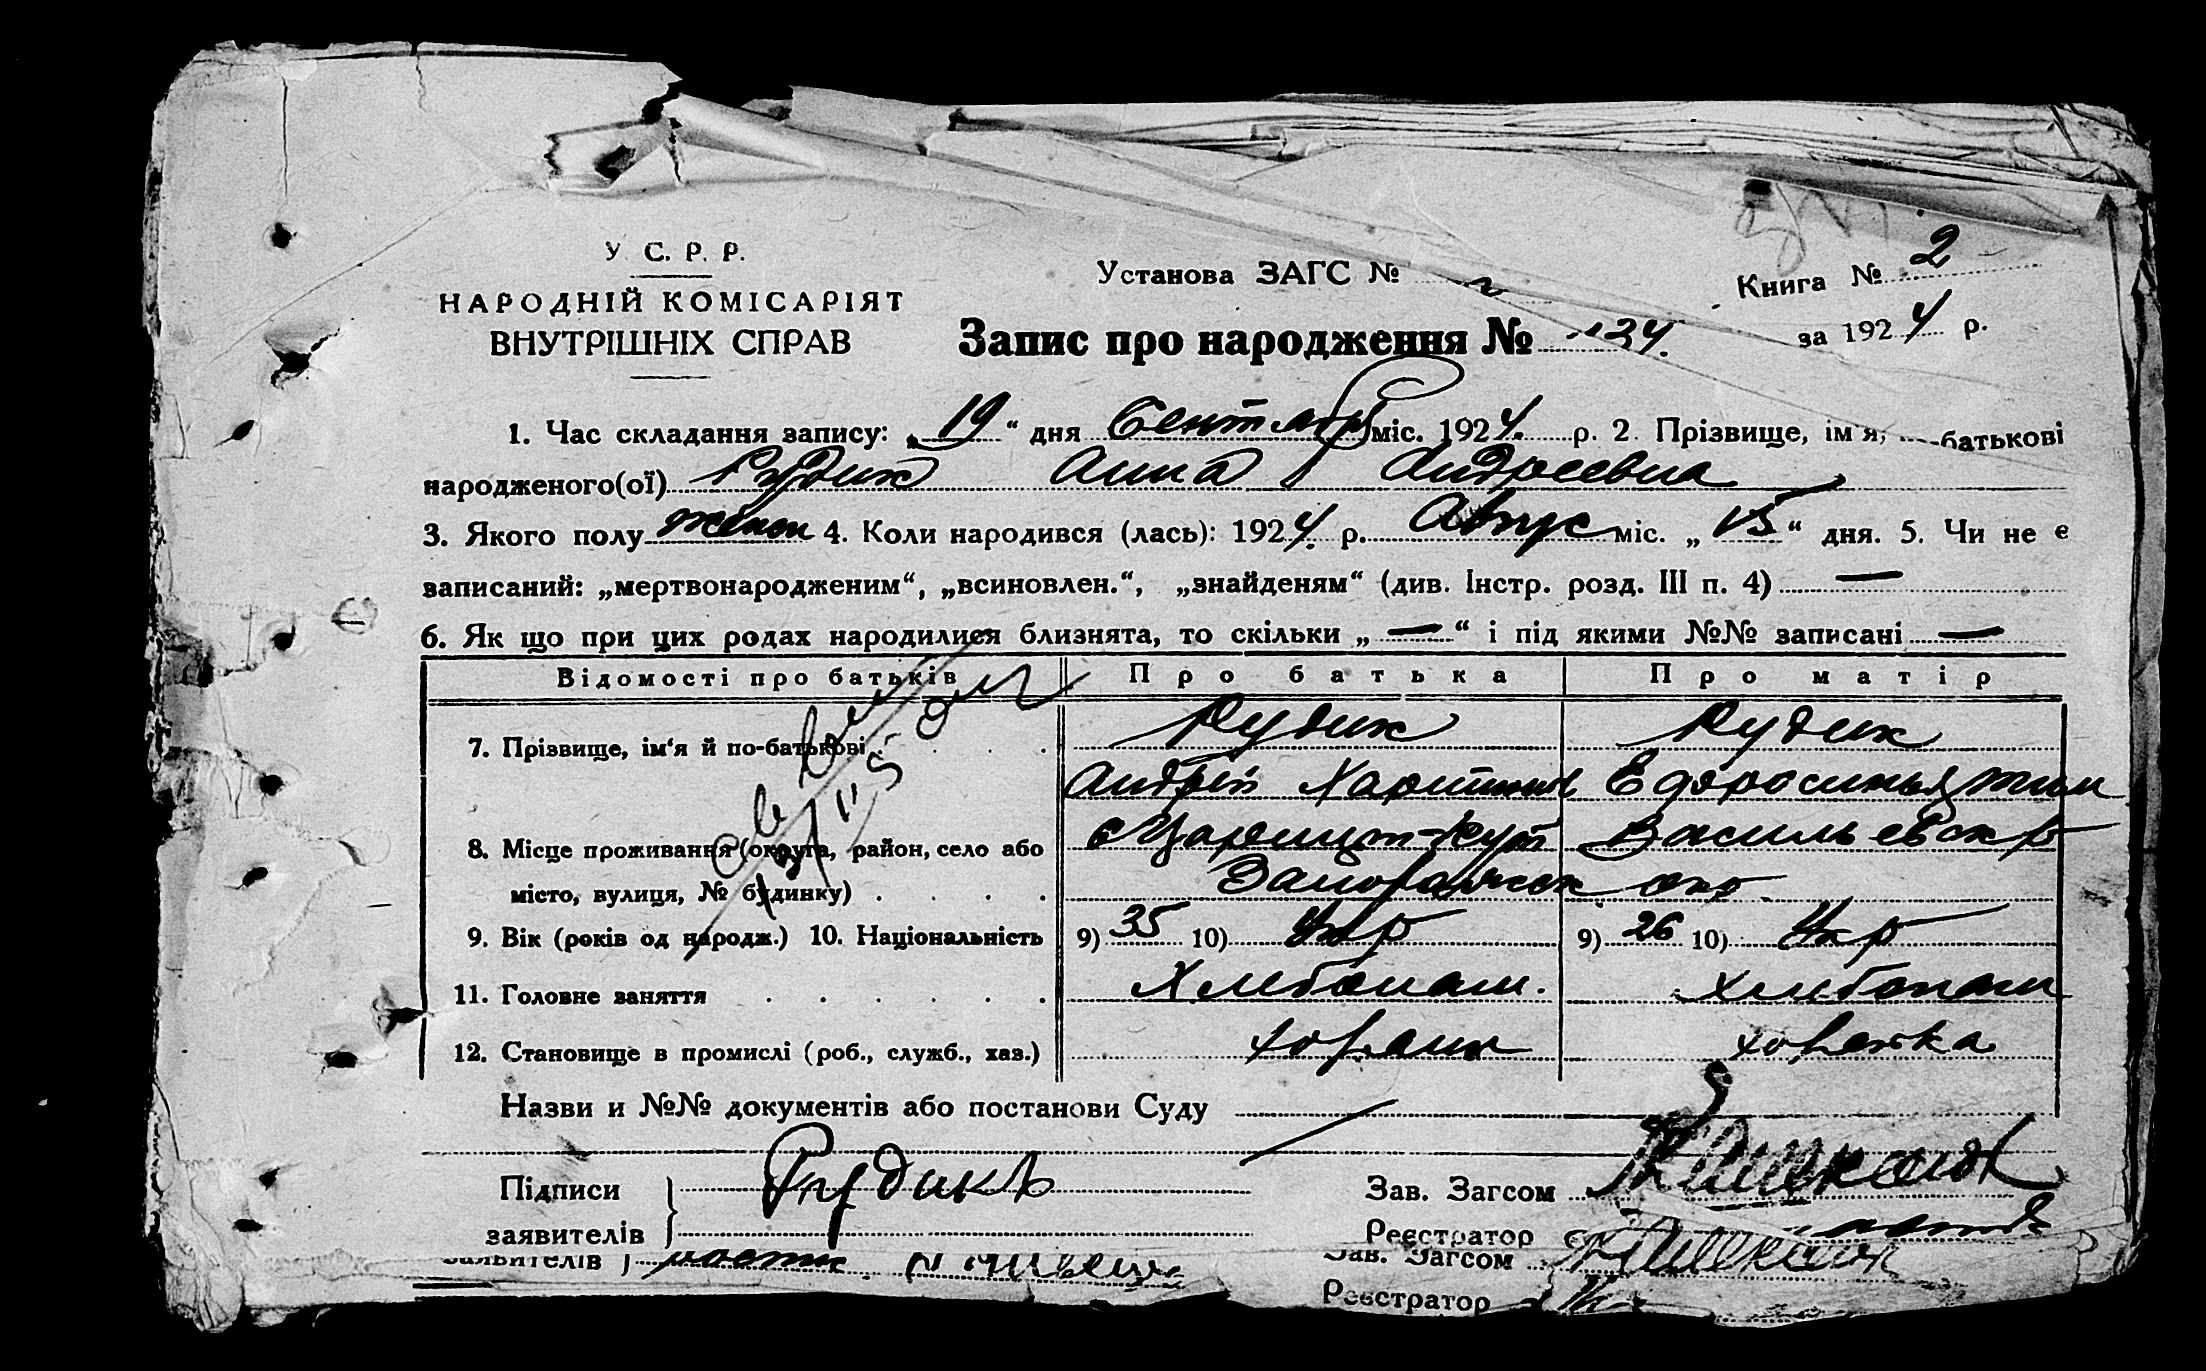 У. С. Р. Р.
НАРОДНІЙ КОМІСАРІЯТ
ВНУТРІШНІХ СПРАВ
Установа ЗАГС №
Книга № 2
за 1924 р.
Запис про народження № 134.
1. Час складання запису: „19“ дня Сентября міс. 1924 р. 2. Прізвище, ім'я, батькові
народженого(ої) Рудик Анна Андреевна
3. Якого полу женск 4. Коли народився (лась): 1924 р. Авгус міс. „15“ дня. 5. Чи не є
записаний: „мертвонародженим“, „всиновлен.“, „знайденям“ (див. Інстр. розд. III п. 4) —
6. Як що при цих родах народилися близнята, то скільки „—“ і під якими №№ записані —
Відомості про батьків Про батька Про матір
7. Прізвище, ім'я й по-батькові Рудик Рудик
Андрій Харитонов Ефросинья Тим
8. Місце проживання (округа, район, село або с Царицын-Кут Васильевск р
місто, вулиця, № будинку) Запорожск окр
9. Вік (років од народж.) 10. Національність 9) 35 10) Укр 9) 26 10) Укр
11. Головне заняття Хлебопаш. хлебопаш
12. Становище в промислі (роб., служб., хаз.) хозяин хозяйка
Назви и №№ документів або постанови Суду
Підписи Рудикъ Зав. Загсом
заявителів Реєстратор
заявителів Зав. Загсом
Реєстратор